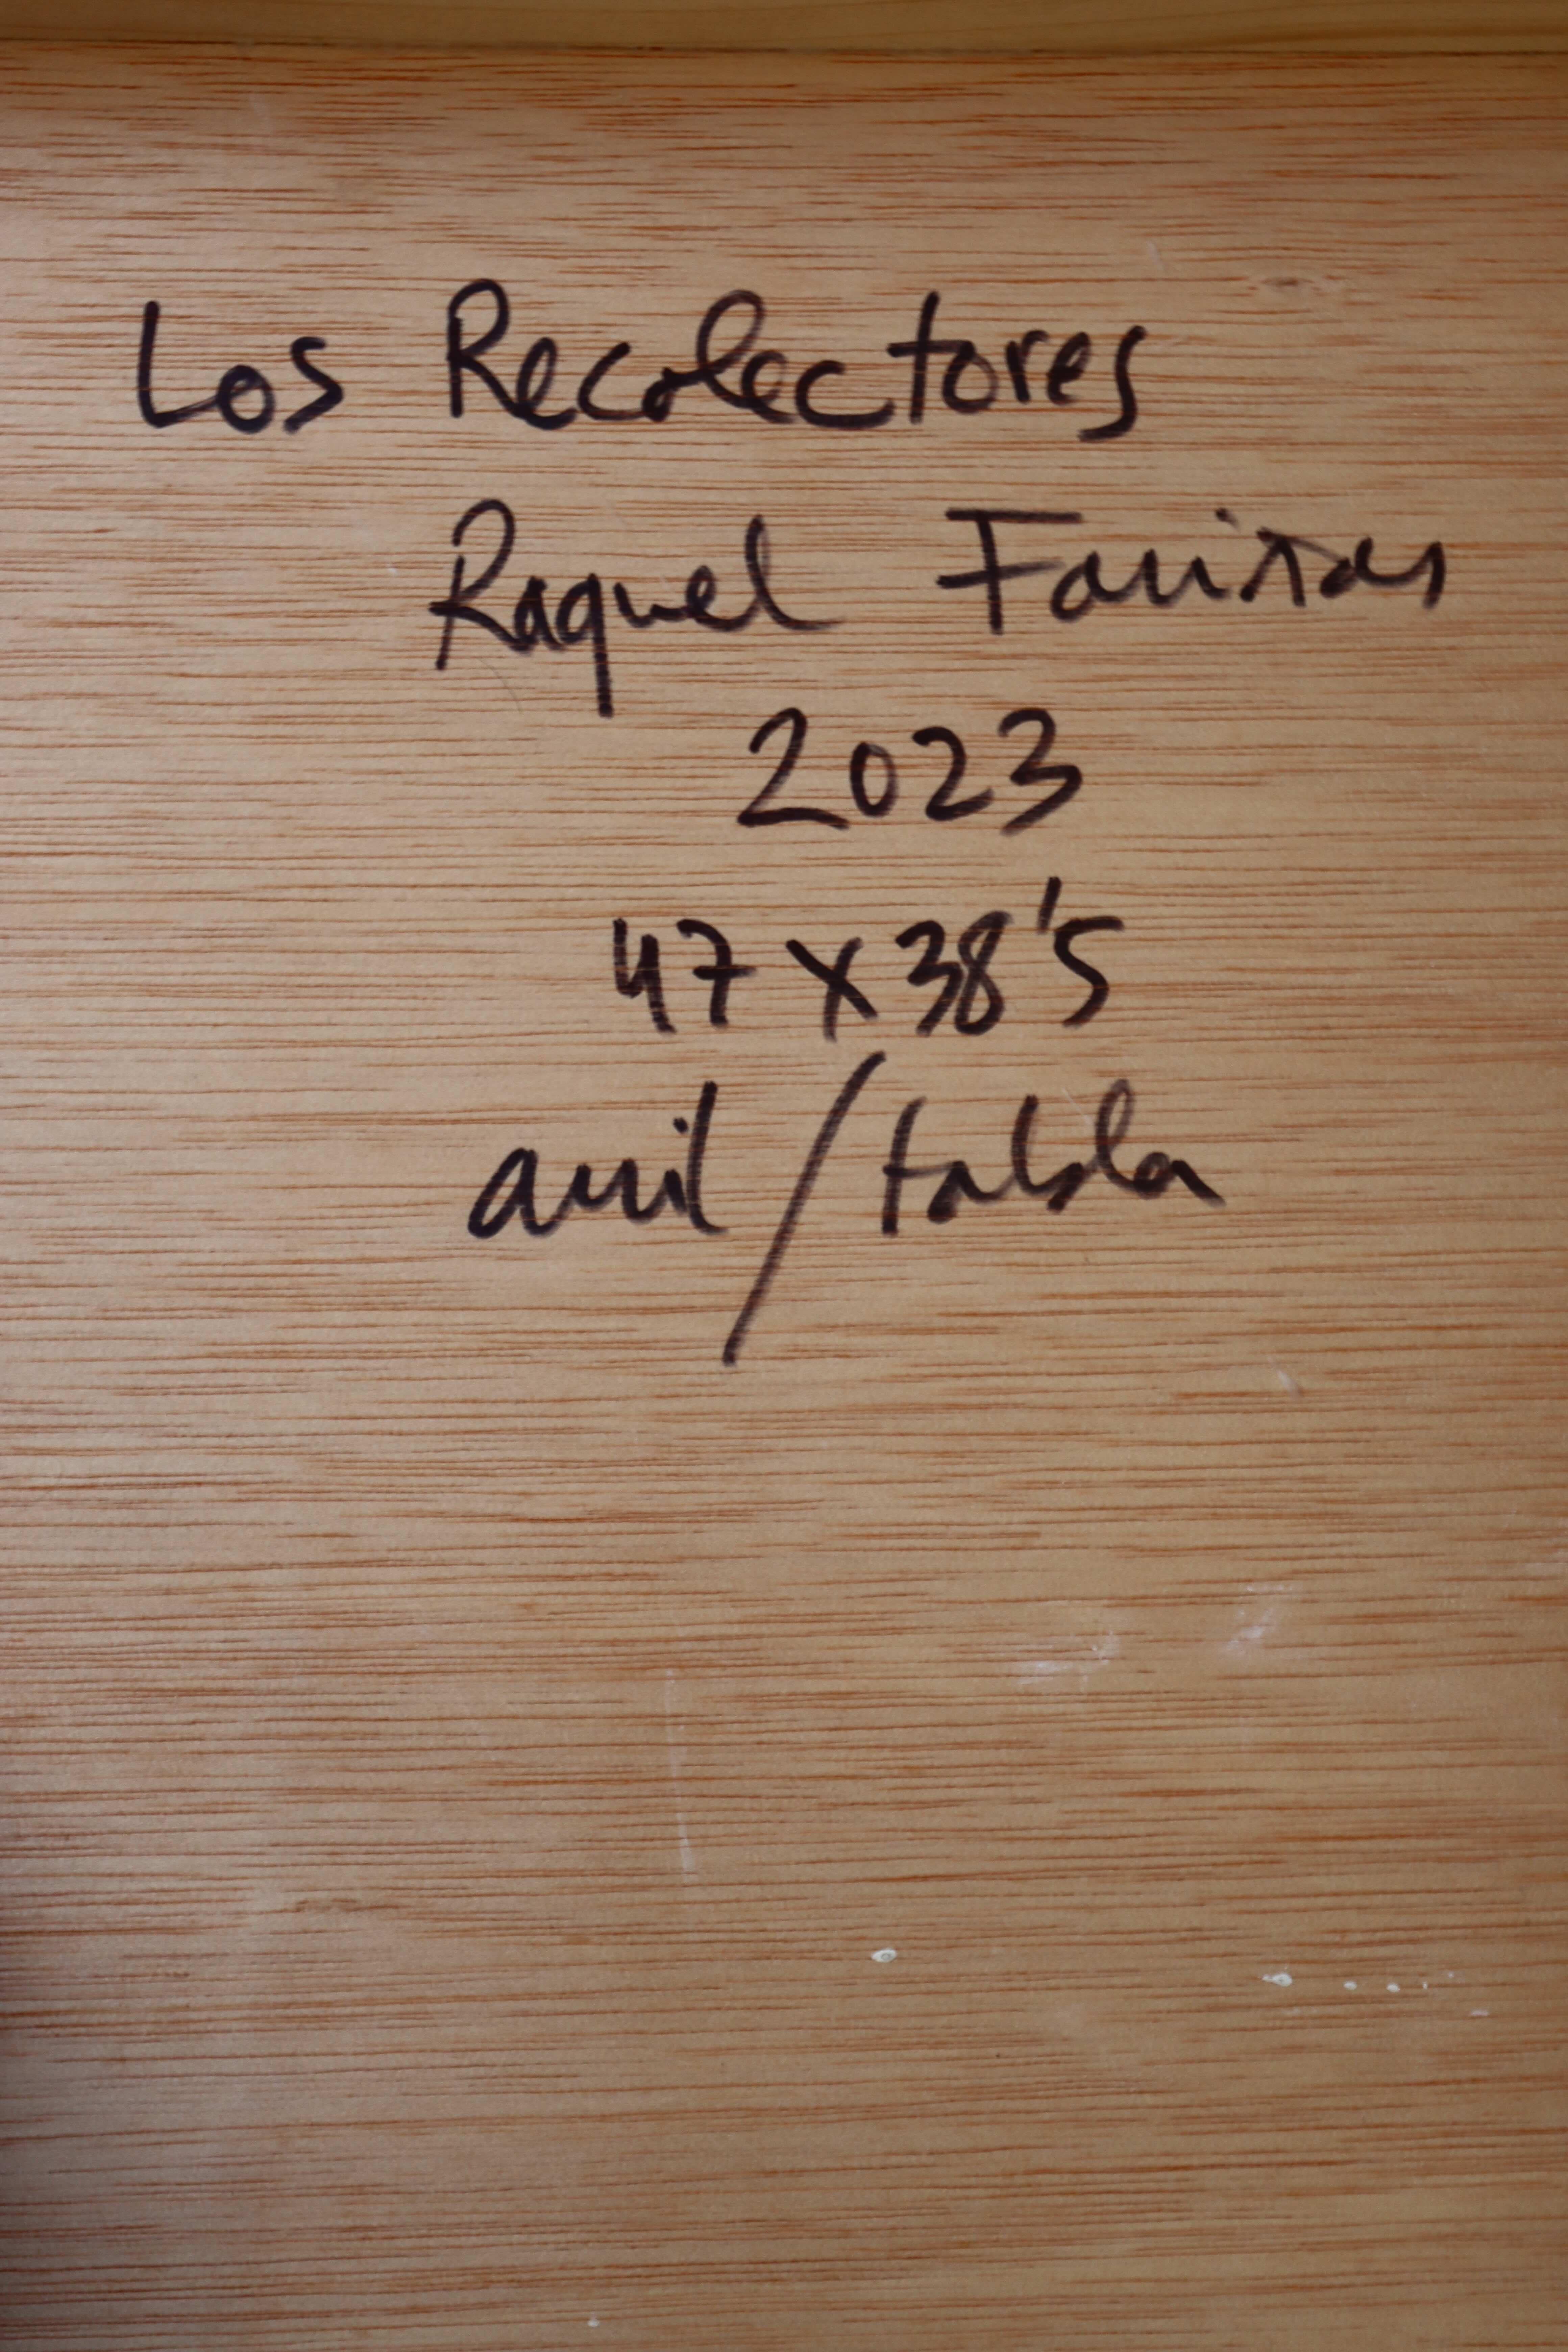 Los Recolectores
Raquel Fariñas
2023
47 x 38'5
/tabla